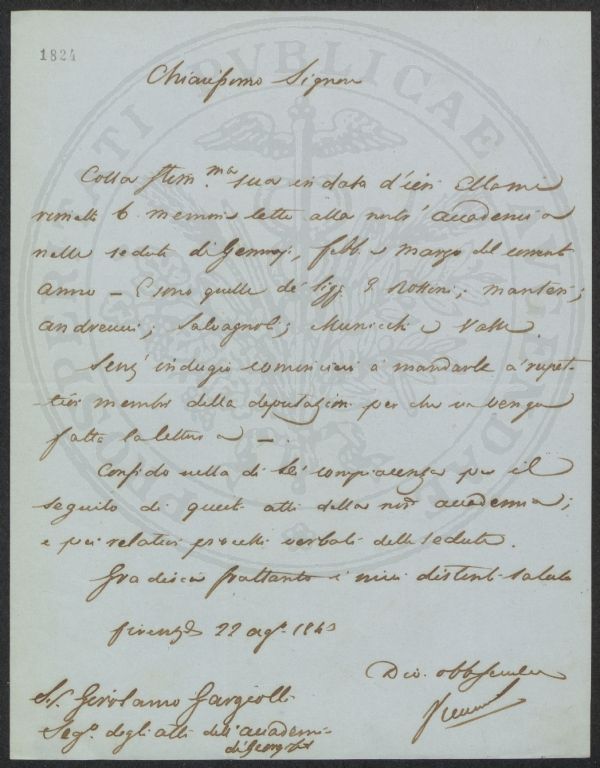 1824
Chiarissimo Signore
Colla stim.ma sua in data d'ieri Ella mi
rimette 6 memorie lette alla nostr' accademia
nelle sedute di Gennajo, febb. e marzo del corrente
anno — E sono quelle de' Sigg. Rossini; manteri;
andreucci; Salvagnoli; Municchi e
Senz' indugio comincierò a mandarle a' rispet-
tivi membri della deputazione perchè ne venga
fatta la lettura —.
Confido nella di Lei compiacenza per il
seguito di questi atti della nostr accademia;
e pei relativi processi verbali delle sedute.
Gradisca frattanto i miei distinti saluti
firenze 22 ago. 184
Dev. obb. Servitore
S.r Girolamo Gargiolli
Seg.o degli atti dell'accademia
di Georgofili
PROSPERITATI PUBLICAE AUGENDAE